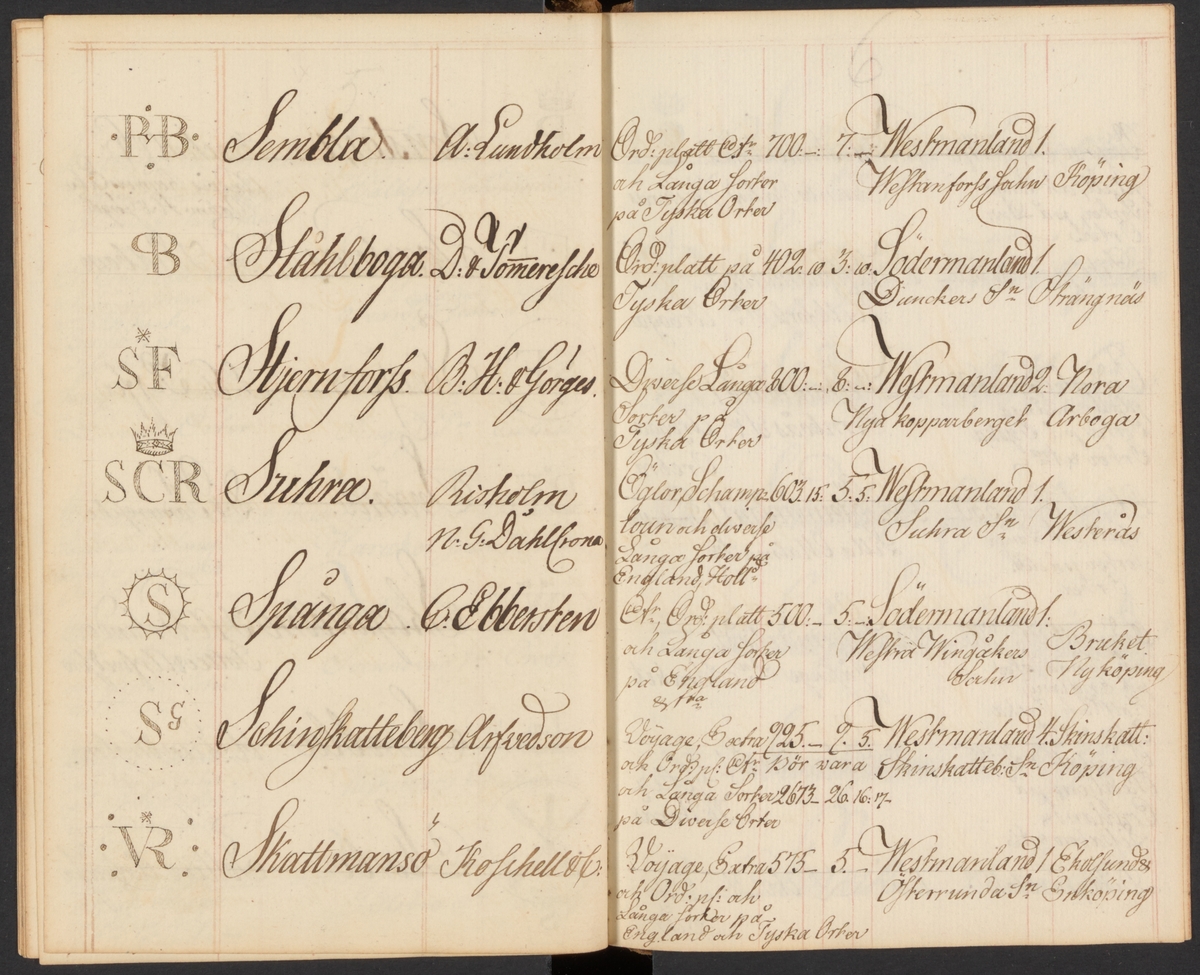 P·B Sembla. A: Lundholm Ord: platt Ctr 700.–: 7:–: Westmanland 1.
och Långa Sorter Westanforss Sochn Köping
på Tyska Orter
B Ståhlboga. D: v Tömeresche Ord: platt på 402. 10 3: 10. Södermanland 1.
Tyska Orter Dunckers Sn Strängnäs
SF Stjernforss. B: H: v Görges. Diverse Långa 800:–: 8:–: Westmanland 2. Nora
Sorter på Nya kopparberget Arboga
Tyska Orter
SCR Suhra. Risholm Öglor, Schamp: 603. 15: 5: 5: Westmanland 1.
N: G: DahlCrona loun och diverse Suhra Sn Westerås
Långa sorter på
England, Holl
S Spånga. C: Ebbersten Ctr, Ord: platt 500:– 5:– Södermanland 1:
och Långa Sorter Westra Wingåkers Bruket
på England Sochn Nyköping
&tra
SG Schinskatteberg Arfvedson Voyage, Extra 925.– 9. 5. Westmanland 4. Skinskatt:
och Ord: pl: Ctr bör vara Skinskatteb: Sn Köping
och Långa Sorter 2673– 26. 16. 17–
på Diverse Orter
VR Skattmansö Koschell & C: Voyage, Extra 515– 5.– Westmanland 1 Ekolsund &
och Ord: pl: och Österrunda Sn Enköping
Långa sorter på
England och Tyska Orter